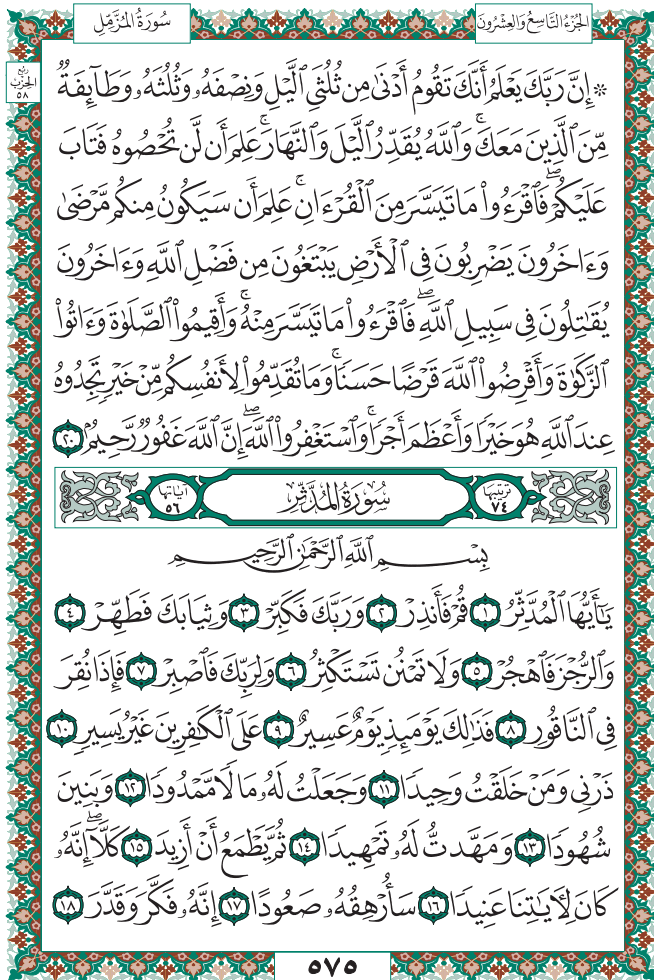 سُورَةُ المُزَّمِّل
الجُزْءُ التَّاسِعُ وَالعِشْرُونَ
ربع
الحزب
٥٨
۞ إِنَّ رَبَّكَ يَعْلَمُ أَنَّكَ تَقُومُ أَدْنَىٰ مِن ثُلُثَيِ ٱلَّيْلِ وَنِصْفَهُۥ وَثُلُثَهُۥ وَطَآئِفَةٌ
مِّنَ ٱلَّذِينَ مَعَكَۚ وَٱللَّهُ يُقَدِّرُ ٱلَّيْلَ وَٱلنَّهَارَۚ عَلِمَ أَن لَّن تُحْصُوهُ فَتَابَ
عَلَيْكُمْۖ فَٱقْرَءُوا۟ مَا تَيَسَّرَ مِنَ ٱلْقُرْءَانِۚ عَلِمَ أَن سَيَكُونُ مِنكُم مَّرْضَىٰ
وَءَاخَرُونَ يَضْرِبُونَ فِى ٱلْأَرْضِ يَبْتَغُونَ مِن فَضْلِ ٱللَّهِ وَءَاخَرُونَ
يُقَٰتِلُونَ فِى سَبِيلِ ٱللَّهِۖ فَٱقْرَءُوا۟ مَا تَيَسَّرَ مِنْهُۚ وَأَقِيمُوا۟ ٱلصَّلَوٰةَ وَءَاتُوا۟
ٱلزَّكَوٰةَ وَأَقْرِضُوا۟ ٱللَّهَ قَرْضًا حَسَنًاۚ وَمَا تُقَدِّمُوا۟ لِأَنفُسِكُم مِّنْ خَيْرٍ تَجِدُوهُ
عِندَ ٱللَّهِ هُوَ خَيْرًا وَأَعْظَمَ أَجْرًاۚ وَٱسْتَغْفِرُوا۟ ٱللَّهَۖ إِنَّ ٱللَّهَ غَفُورٌ رَّحِيمٌۢ ٢٠
ترتيبها ٧٤ سُورَةُ المُدَّثِّر آياتها ٥٦
بِسْمِ ٱللَّهِ ٱلرَّحْمَٰنِ ٱلرَّحِيمِ
يَٰٓأَيُّهَا ٱلْمُدَّثِّرُ ١ قُمْ فَأَنذِرْ ٢ وَرَبَّكَ فَكَبِّرْ ٣ وَثِيَابَكَ فَطَهِّرْ ٤
وَٱلرُّجْزَ فَٱهْجُرْ ٥ وَلَا تَمْنُن تَسْتَكْثِرُ ٦ وَلِرَبِّكَ فَٱصْبِرْ ٧ فَإِذَا نُقِرَ
فِى ٱلنَّاقُورِ ٨ فَذَٰلِكَ يَوْمَئِذٍ يَوْمٌ عَسِيرٌ ٩ عَلَى ٱلْكَٰفِرِينَ غَيْرُ يَسِيرٍ ١٠
ذَرْنِى وَمَنْ خَلَقْتُ وَحِيدًا ١١ وَجَعَلْتُ لَهُۥ مَالًا مَّمْدُودًا ١٢ وَبَنِينَ
شُهُودًا ١٣ وَمَهَّدتُّ لَهُۥ تَمْهِيدًا ١٤ ثُمَّ يَطْمَعُ أَنْ أَزِيدَ ١٥ كَلَّآۖ إِنَّهُۥ
كَانَ لِءَايَٰتِنَا عَنِيدًا ١٦ سَأُرْهِقُهُۥ صَعُودًا ١٧ إِنَّهُۥ فَكَّرَ وَقَدَّرَ ١٨
٥٧٥